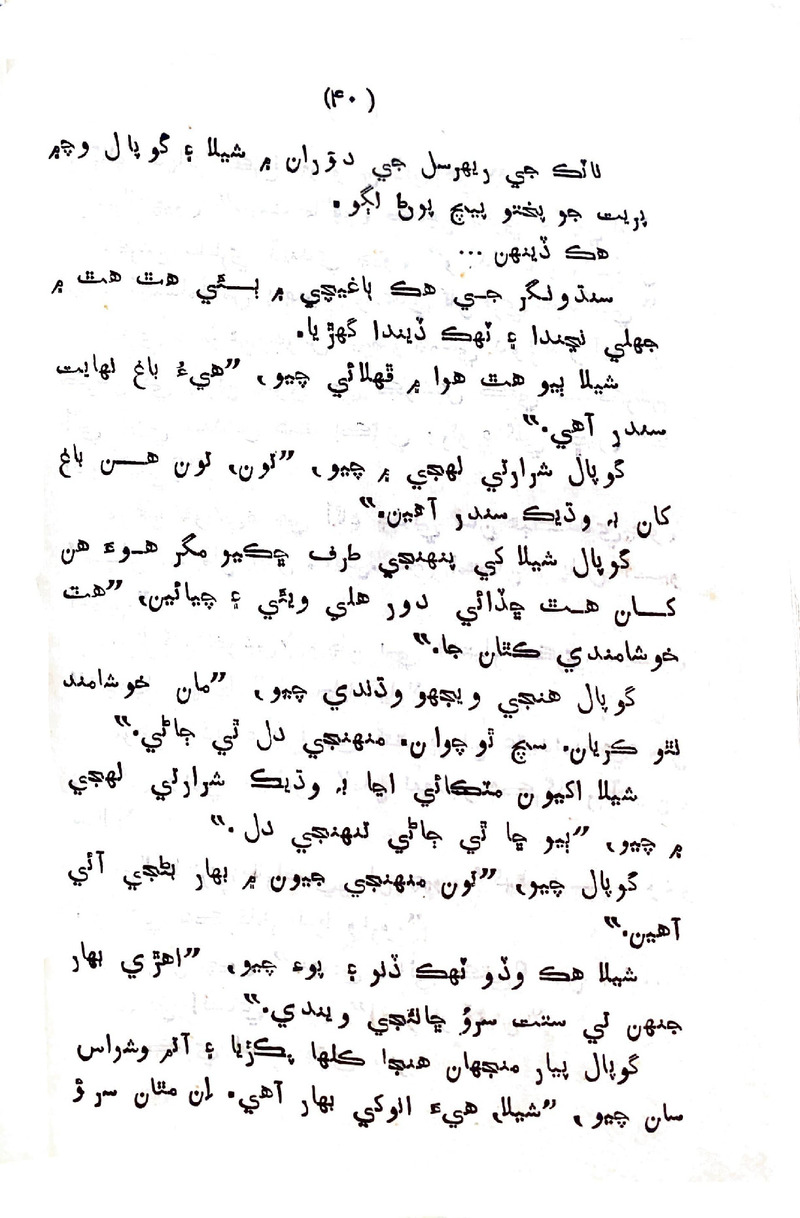 (۴۰)
ناٽڪ جي ريهرسل جي دؤران ۾ شيلا ۽ گوپال وچ۾
پريت جو پختو پيچ پوڻ لڳو.
هڪ ڏينهن ...
سنڌونگر جي هڪ باغيچي ۾ ٻئي هٿ هٿ ۾
جهلي نچندا ۽ ٽهڪ ڏيندا گهڙيا.
شيلا ٻيو هٿ هوا ۾ ڦهلائي چيو، ”هيءُ باغ نهايت
سندر آهي.“
گوپال شرارتي لهجي ۾ چيو، ”تون، تون هن باغ
کان به وڌيڪ سندر آهين.“
گوپال شيلا کي پنهنجي طرف ڇڪيو مگر هوءَ هن
کان هٿ ڇڏائي دور هلي ويئي ۽ چيائين، ”هٽ
خوشامندي ڪٿان جا.“
گوپال هنجي ويجهو وڌندي چيو، ”مان خوشامند
نٿو ڪريان. سچ ٿو چوان. منهنجي دل ٿي ڄاڻي.“
شيلا اکيون مٽڪائي اڃا به وڌيڪ شرارتي لهجي
۾ چيو، ”ٻيو ڇا ٿي ڄاڻي تنهنجي دل.“
گوپال چيو، ”تون منهنجي جيون ۾ بهار بڻجي آئي
آهين.“
شيلا هڪ وڏو ٽهڪ ڏنو ۽ پوءِ چيو، ”اهڙي بهار
جنهن تي سنت سرؤ ڇانئجي ويندي.“
گوپال پيار منجهان هنجا ڪلها پڪڙيا ۽ آتم وشواس
سان چيو، ”شيلا، هيءَ انوکي بهار آهي. اِن مٿان سرؤ